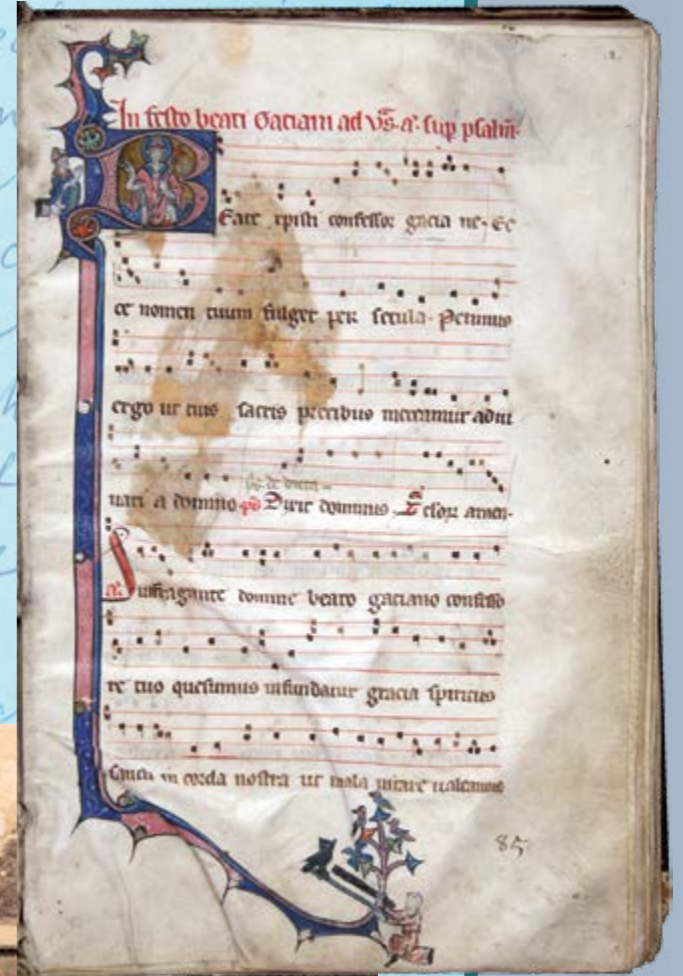 In festo beati Gaciani ad vs. a. sup psalm.
Beate xpisti confessor gacia ne. Ec
ce nomen tuum fulget per secula. Petimus
ergo ut tuis sacris precibus mereamur adiu
uari a domino ps Dixit dominus
Suffragante domine beato gaciano confesso
re tuo quesumus infundatur gracia spiritus
sancti in corda nostra ut mala uitare ualeamus
85